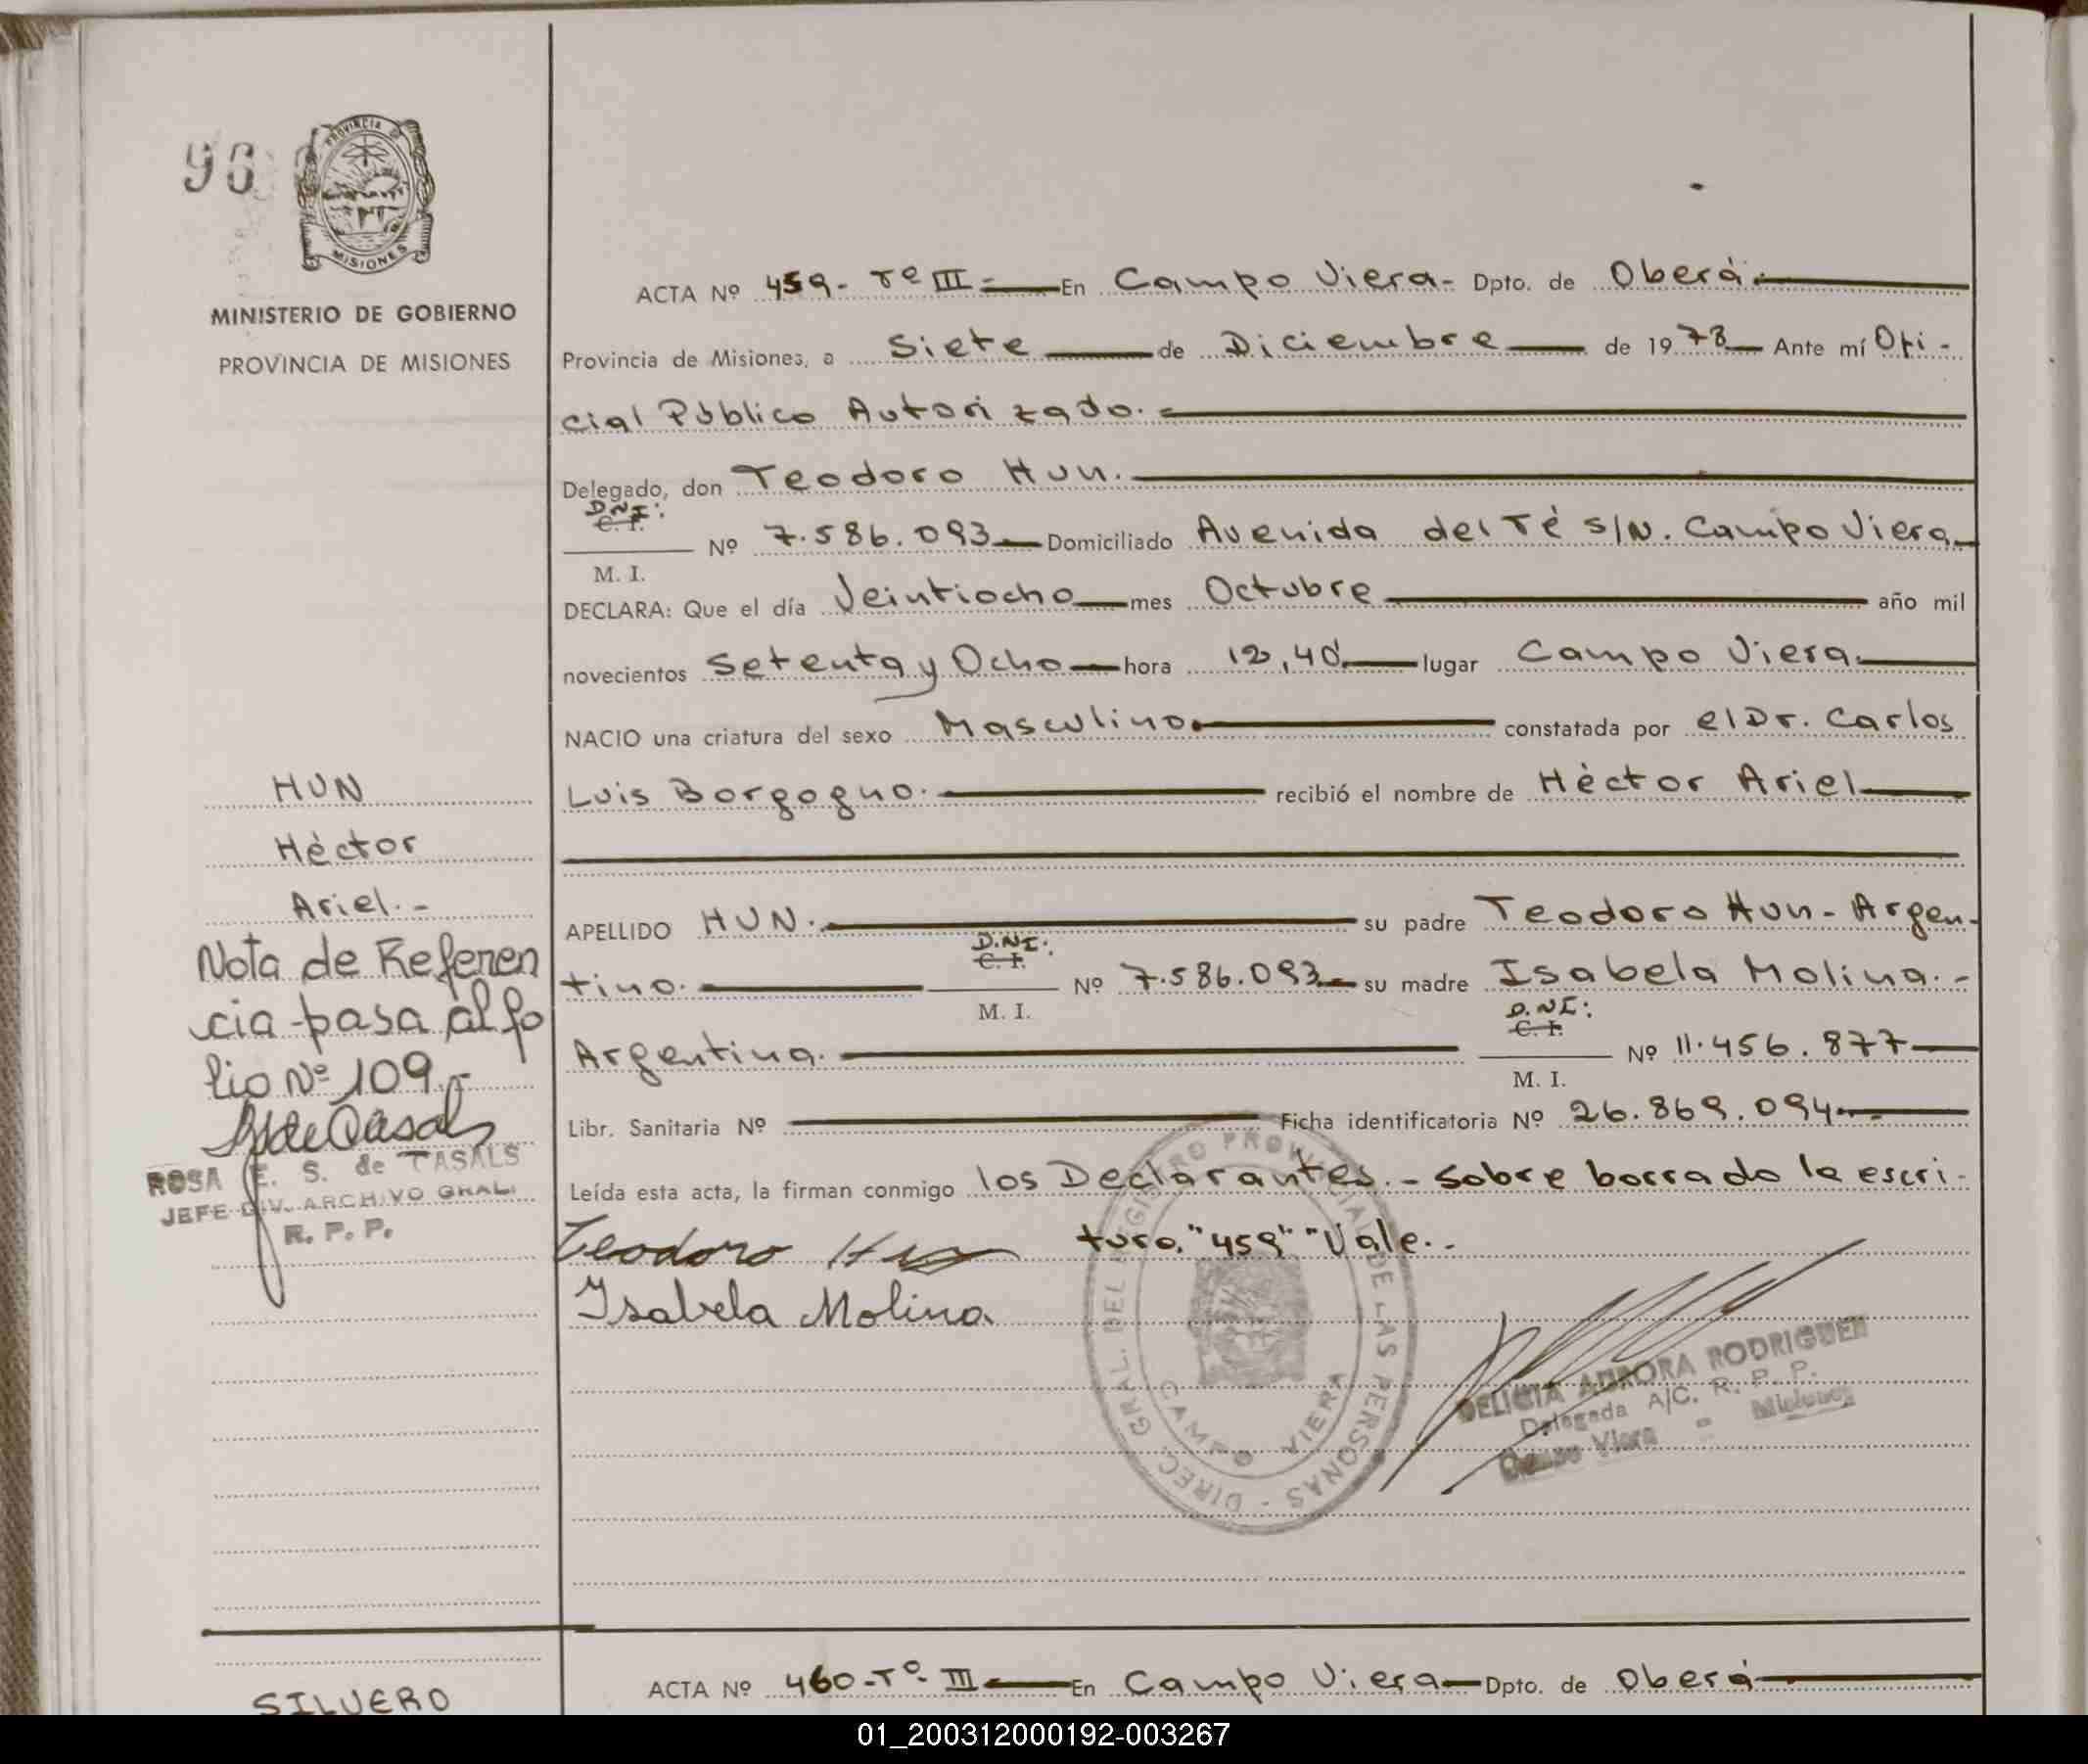 96
PROVINCIA DE
MISIONES
MINISTERIO DE GOBIERNO
PROVINCIA DE MISIONES
ACTA Nº 459- Tº III - En Campo Viera- Dpto. de Oberá.
Provincia de Misiones, a Siete de Diciembre de 1978 Ante mí Ofi-
cial Público Autorizado.
Delegado, don Teodoro Hun.
D.N.I:
C. I.
M. I.
Nº 7.586.093 Domiciliado Avenida del Té S/N. Campo Viera
DECLARA: Que el día Veintiocho mes Octubre año mil
novecientos Setenta y Ocho hora 12,40 lugar Campo Viera.
NACIO una criatura del sexo Masculino. constatada por el Dr. Carlos
Luis Borgogno. recibió el nombre de Héctor Ariel
APELLIDO HUN. su padre Teodoro Hun- Argen-
tino. D.N.I: C. I. M. I. Nº 7.586.093 su madre Isabela Molina.-
Argentina. D.NI: C. I. M. I. Nº 11.456.877
Libr. Sanitaria Nº Ficha identificatoria Nº 26.869.094
Leída esta acta, la firman conmigo los Declarantes.- Sobre borrado la escri-
tura "459" "Vale.-
Teodoro Hun
Isabela Molina
HUN
Héctor
Ariel.-
Nota de Referen
cia pasa al fo
lio Nº 109.-
ROSA E. S. de CASALS
JEFE DIV. ARCHIVO GRAL.
R. P. P.
DIREC. GRAL. DEL REGISTRO PROVINCIAL DE LAS PERSONAS -
CAMPO VIERA
DELICIA AURORA RODRIGUEZ
Delegada A/C. R. P. P.
Campo Viera - Misiones
ACTA Nº 460-Tº- III En Campo Viera Dpto. de Oberá
SILVERO
01_200312000192-003267